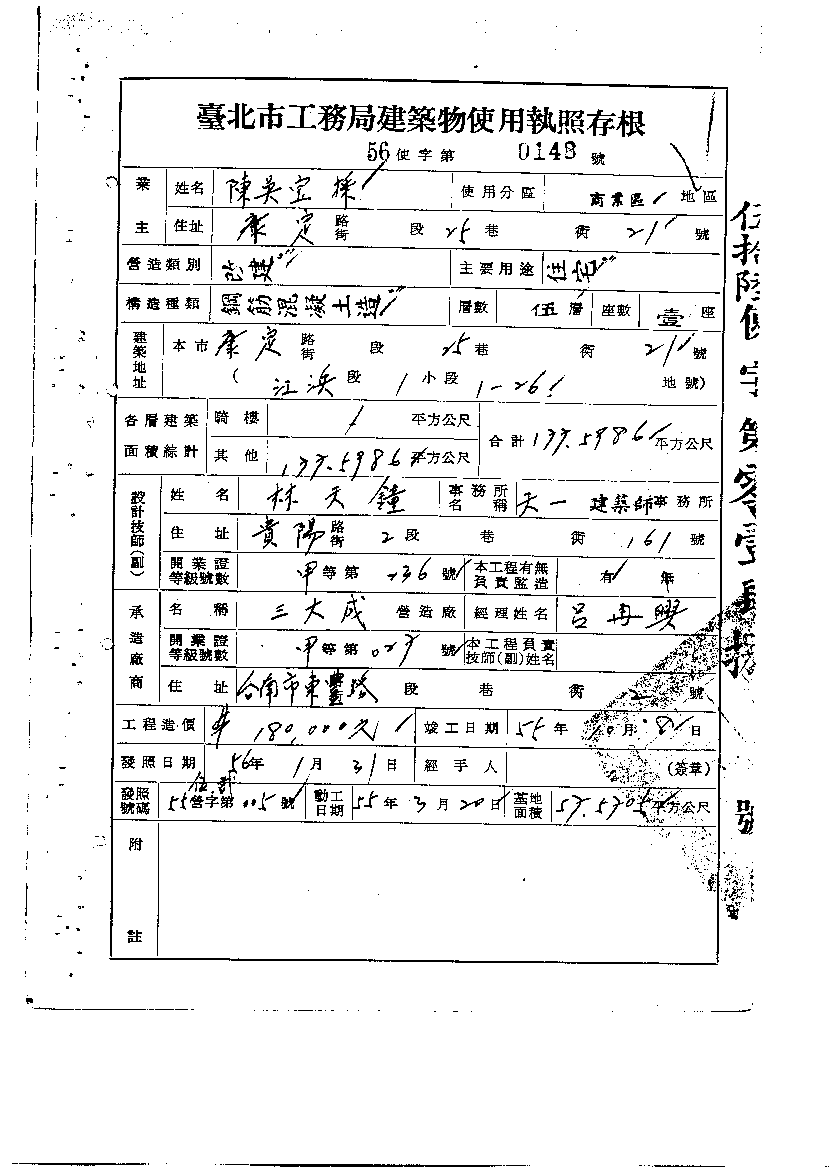 臺北市工務局建築物使用執照存根
56使字第 0148 號
業主 姓名 陳吳宝採 使用分區 商業區 地區
住址 康定 路街 段 25巷 衖 21 號
營造類別 改建 主要用途 住宅
構造種類 鋼筋混凝土造 層數 伍層 座數 壹座
建築地址 本市 康定 路街 段 25巷 衖 21 號
(江浜段 1 小段 1-26 地號)
各層建築面積綜計 騎樓 平方公尺 合計 137.5986 平方公尺
其他 137.5986 平方公尺
設計技師(副) 姓名 林天鐘 事務所名稱 天一 建築師事務所
住址 貴陽 路街 2段 巷 衖 161 號
開業證等級號數 甲等第 236 號 本工程有無負責監造 有 無
承造廠商 名稱 三大成 營造廠 經理姓名 呂再興
開業證等級號數 甲等第 027 號 本工程負責技師(副)姓名
住址 台南市東豐路 段 巷 衖 2 號
工程造價 180,000元 竣工日期 55年 10月 8日
發照日期 56年 1月 31日 經手人 (簽章)
發照號碼 55營字第005號 動工日期 55年 3月 20日 基地面積 57.5705 平方公尺
附註
伍拾陸使字第零壹 號